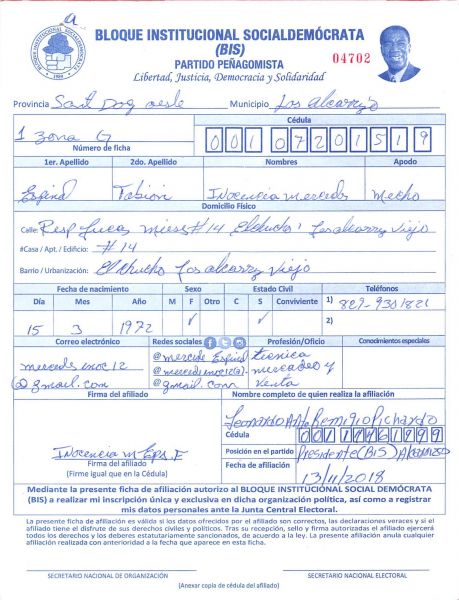 a
BLOQUE INSTITUCIONAL SOCIALDEMÓCRATA
(BIS)
04702
PARTIDO PEÑAGOMISTA
Libertad, Justicia, Democracia y Solidaridad
Provincia Sant Dog oeste Municipio Los Alcarrizo
Cédula
1 Zona G 001 07201519
Número de ficha
1er. Apellido 2do. Apellido Nombres Apodo
Espinal Tabion Inocencia mercedes mecho
Domicilio Físico
Calle: Resp Lucas Mieses #14 El chucho, Los alcarrz Viejo
#Casa / Apt. / Edificio: #14
Barrio / Urbanización: El Chucho Los alcarrz Viejo
Fecha de nacimiento Sexo Estado Civil Teléfonos
Día Mes Año M F Otro C S Conviviente 1) 829-9301821
15 3 1972 ✓ ✓ 2)
Correo electrónico Redes sociales Profesión/Oficio Conocimientos especiales
mercedsinoc12 @mercede Espinal tecnica
@gmail.com @mercedesinoc12@- mercadeo y
@gmail.com Venta
Firma del afiliado Nombre completo de quien realiza la afiliación
Leonardo Ant. Remigio Pichardo
Cédula
Inocencia m Esp. F Posición en el partido Presidente (BIS)
Firma del afiliado Fecha de afiliación
(Firme igual que en la Cédula) 13/11/2018
Mediante la presente ficha de afiliación autorizo al BLOQUE INSTITUCIONAL SOCIAL DEMÓCRATA
(BIS) a realizar mi inscripción única y exclusiva en dicha organización política, así como a registrar
mis datos personales ante la Junta Central Electoral.
La presente ficha de afiliación es válida si los datos ofrecidos por el afiliado son correctos, las declaraciones veraces y si el
afiliado tiene el disfrute de sus derechos civiles y políticos. Tras su recepción, sello y firma autorizadas el afiliado ejercerá
todos los derechos y los deberes estatutariamente sancionados, de acuerdo a la ley. La presente afiliación anula cualquier
afiliación realizada con anterioridad a la fecha que aparece en esta ficha.
SECRETARIO NACIONAL DE ORGANIZACIÓN SECRETARIO NACIONAL ELECTORAL
(Anexar copia de cédula del afiliado)